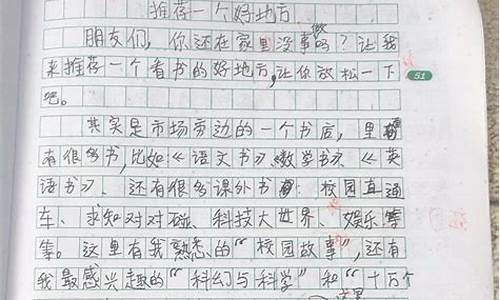 推荐一个好地方
朋友们，你还在家里没事做吗？让我
来推荐一个看书的好地方，让你放松一下
51
吧。
其实是市场旁边的一个书店，里
有很多书，比如《语文书》《数学书》、《英
语书》、还有很多课外书：校园直通
车、求知对对碰、科技大世界、娱乐等
等。这里有我熟悉的“校园故事”，还有
我最感兴趣的“科幻与科学”和“十万个